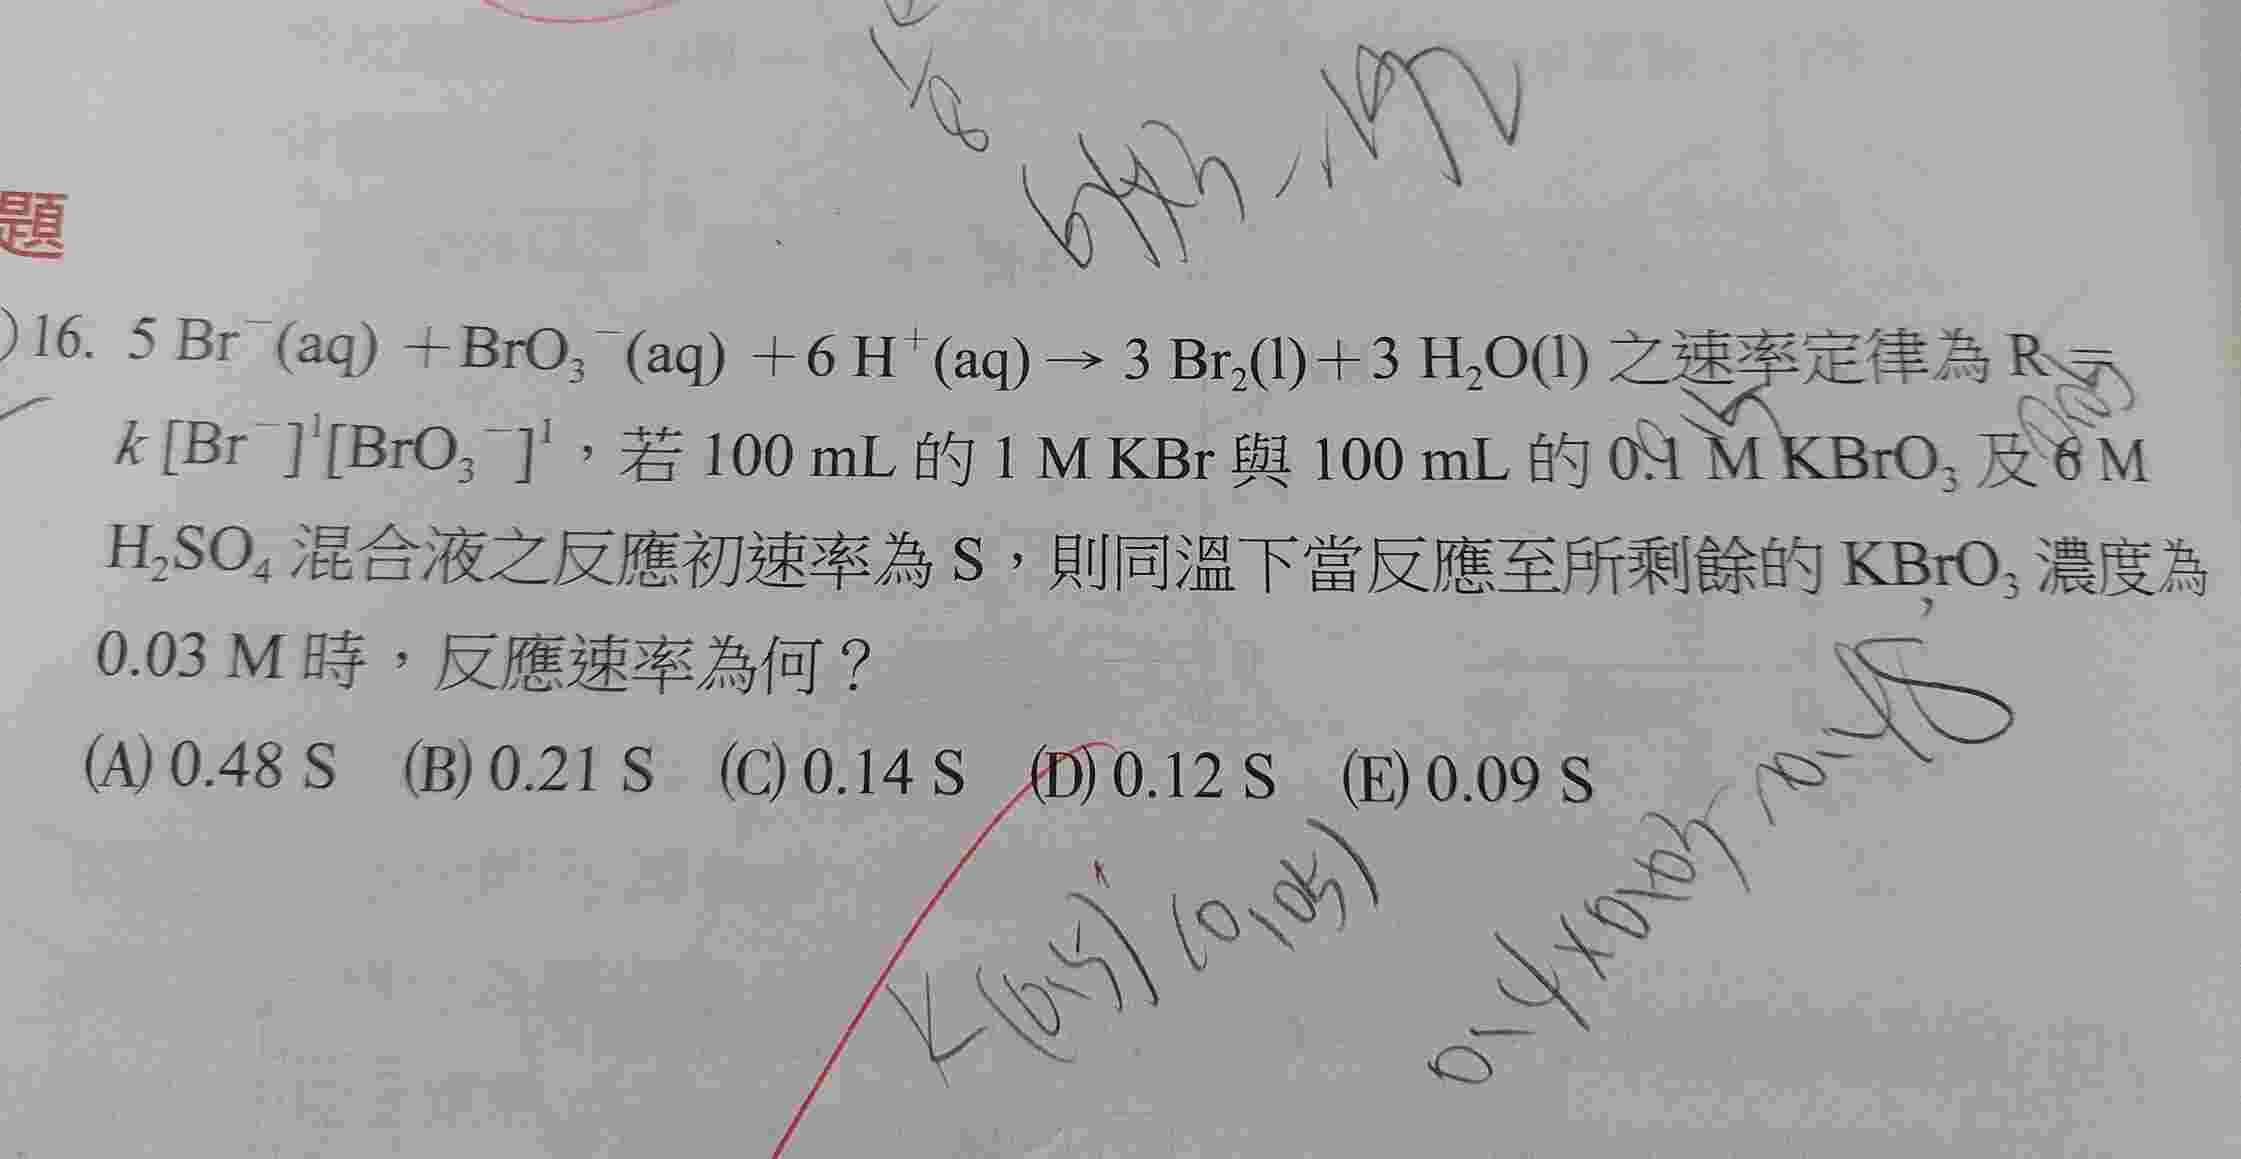 1/8
題
)16. 5 Br⁻(aq) + BrO₃⁻(aq) + 6 H⁺(aq) → 3 Br₂(l) + 3 H₂O(l) 之速率定律為 R =
k [Br⁻]¹[BrO₃⁻]¹,若 100 mL 的 1 M KBr 與 100 mL 的 0.1 M KBrO₃ 及 6 M
H₂SO₄ 混合液之反應初速率為 S,則同溫下當反應至所剩餘的 KBrO₃ 濃度為
0.03 M 時,反應速率為何?
(A) 0.48 S (B) 0.21 S (C) 0.14 S (D) 0.12 S (E) 0.09 S
K(0.5)(0.05)
0.4×0.03
0.48